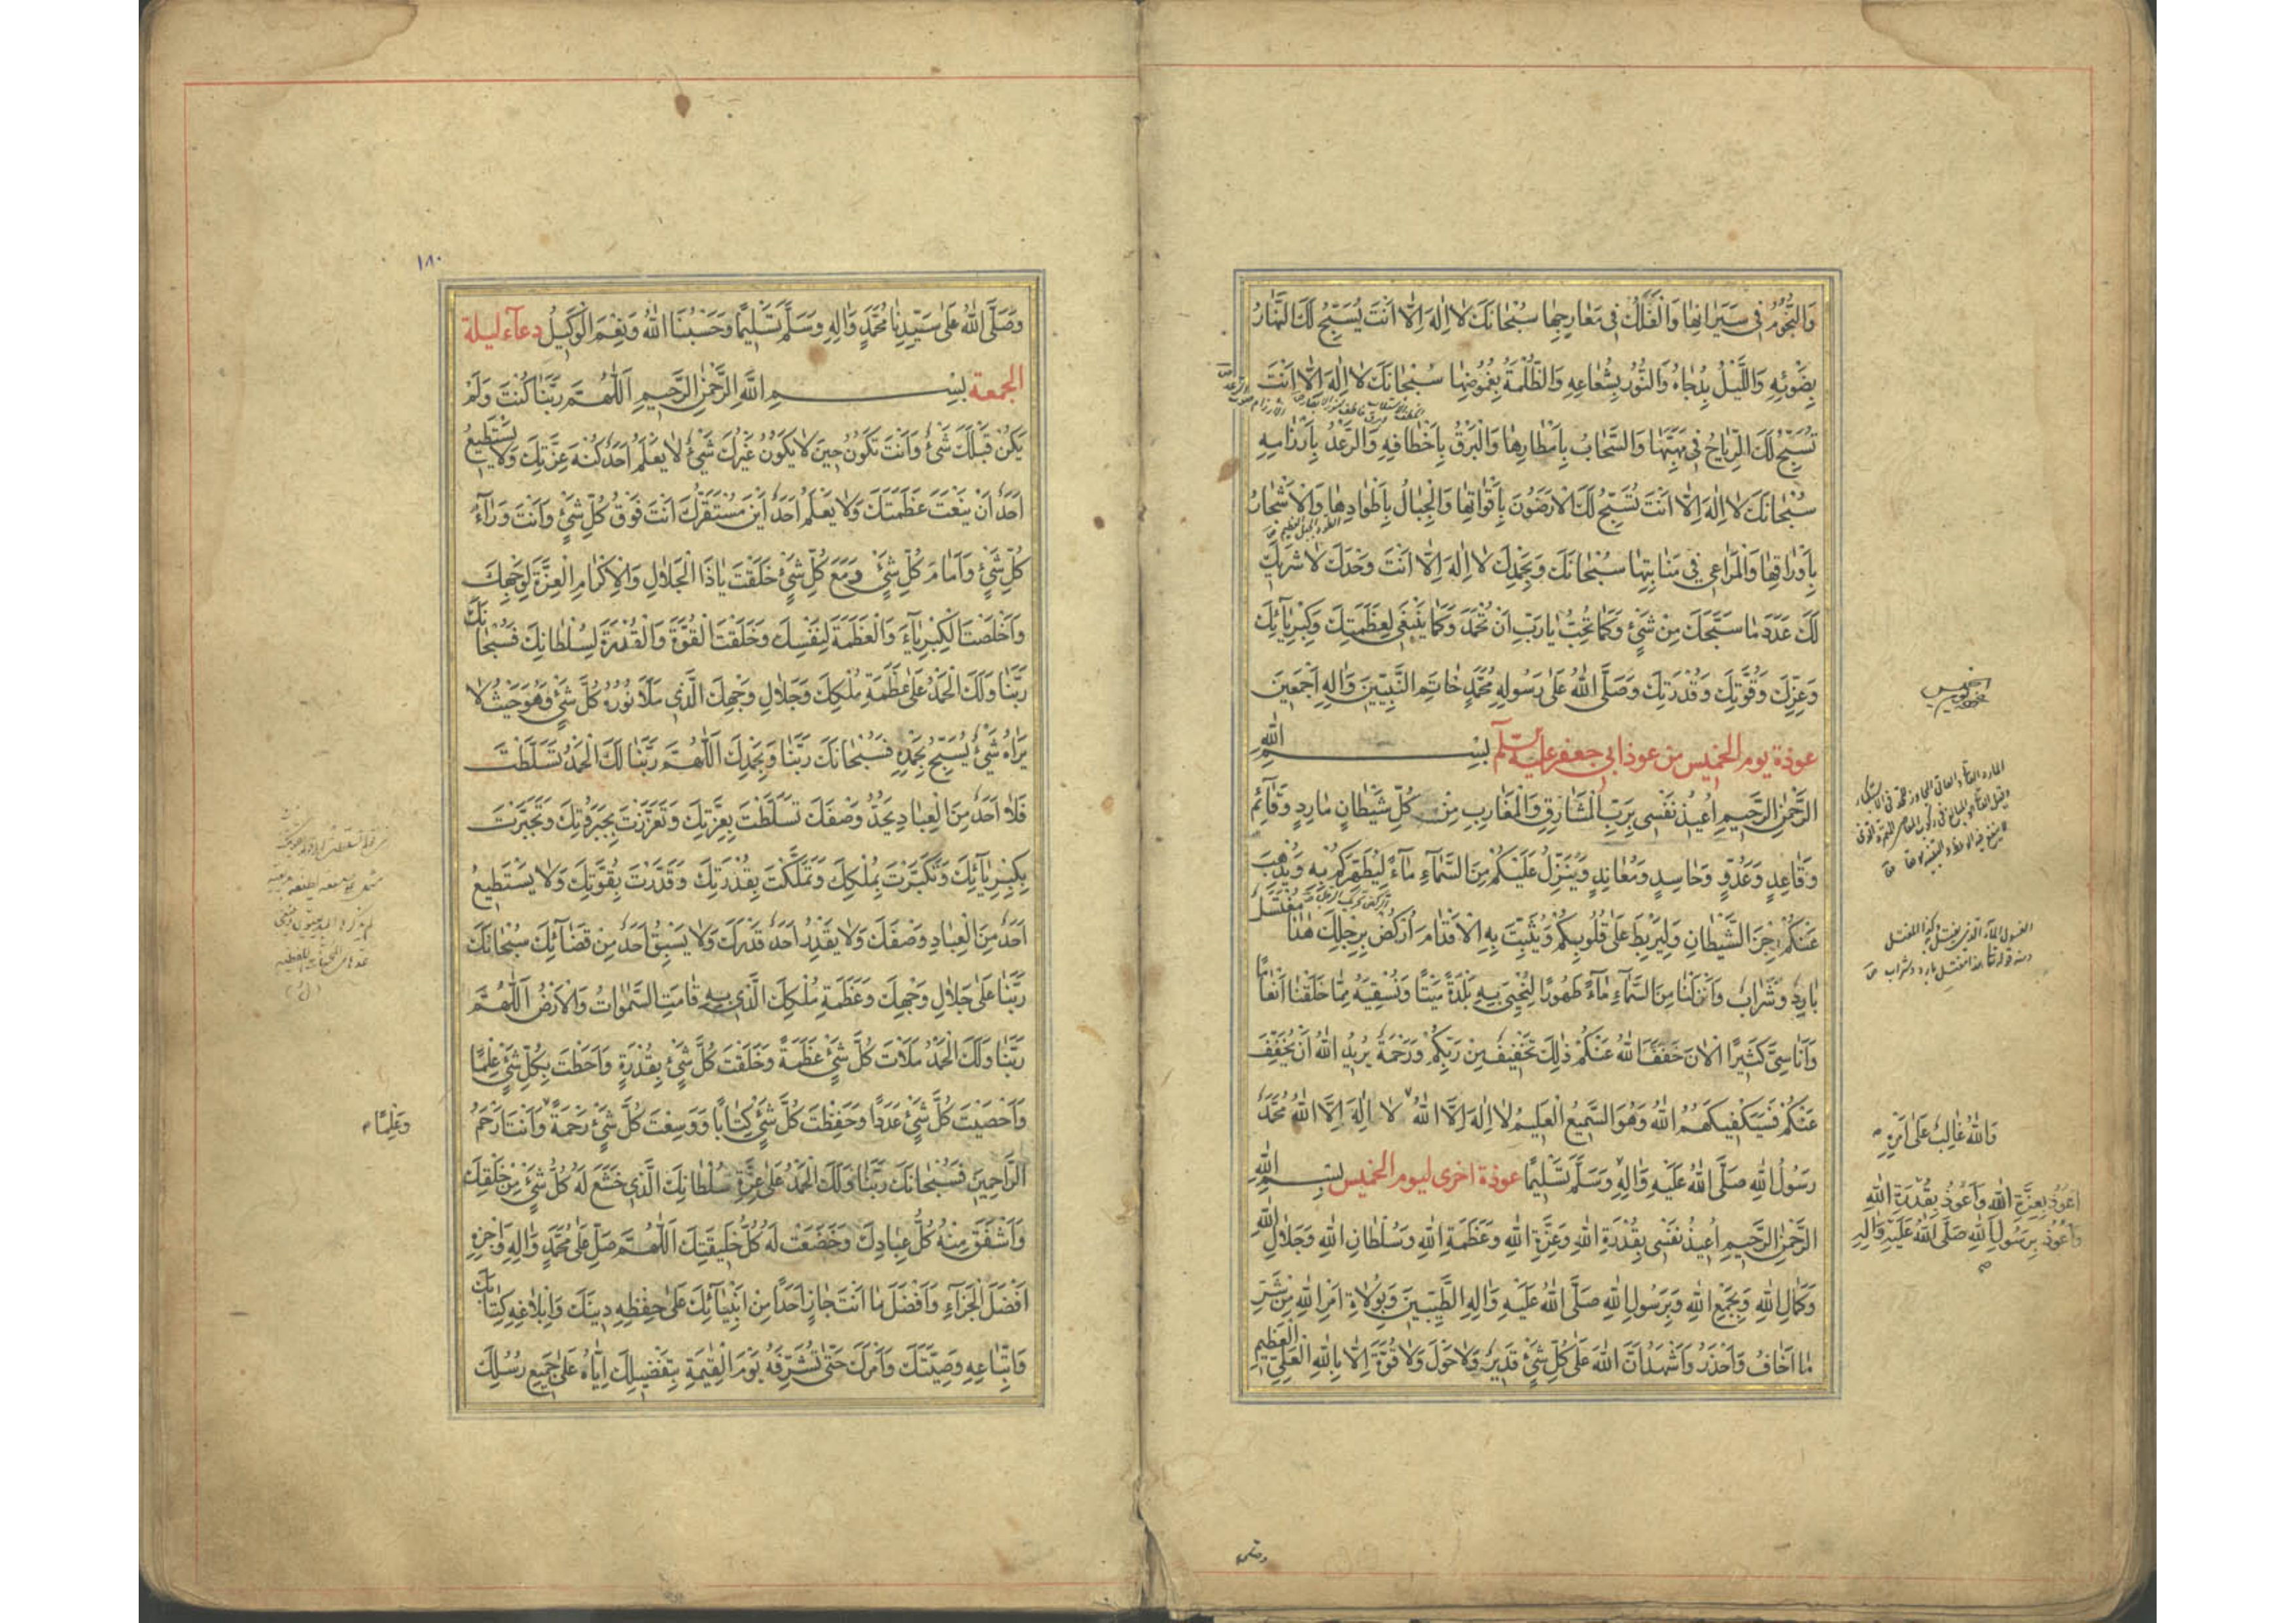 وَالنُّجُومُ فِى سَيَرَانِهَا وَالْفَلَكُ فِى مَعَارِجِهَا سُبْحَانَكَ لَا اِلٰهَ اِلَّا اَنْتَ يُسَبِّحُ لَكَ النَّهَارُ
بِضَوْئِهِ وَاللَّيْلُ بِدُجَاهُ وَالنُّورُ بِشُعَاعِهِ وَالظُّلْمَةُ بِغُمُوضِهَا سُبْحَانَكَ لَا اِلٰهَ اِلَّا اَنْتَ
تُسَبِّحُ لَكَ الرِّيَاحُ فِى مَهَبِّهَا وَالسَّحَابُ بِاَمْطَارِهَا وَالْبَرْقُ بِاَخْطَافِهِ وَالرَّعْدُ بِاَرْزَامِهِ
سُبْحَانَكَ لَا اِلٰهَ اِلَّا اَنْتَ تُسَبِّحُ لَكَ الْاَرَضُونَ بِاَقْوَاتِهَا وَالْجِبَالُ بِاَطْوَادِهَا وَالْاَشْجَارُ
الطود الجبل العظيم
بِاَوْرَاقِهَا وَالْمَرَاعِى فِى مَنَابِتِهَا سُبْحَانَكَ وَبِحَمْدِكَ لَا اِلٰهَ اِلَّا اَنْتَ وَحْدَكَ لَا شَرِيكَ
لَكَ عَدَدَ مَا سَبَّحَكَ مِنْ شَىْءٍ وَكَمَا تُحِبُّ يَا رَبِّ اَنْ تُحْمَدَ وَكَمَا يَنْبَغِى لِعَظَمَتِكَ وَكِبْرِيَآئِكَ
وَعِزِّكَ وَقُوَّتِكَ وَقُدْرَتِكَ وَصَلَّى اللّٰهُ عَلَى رَسُولِهِ مُحَمَّدٍ خَاتِمِ النَّبِيّينَ وَاٰلِهِ اَجْمَعِينَ
عوذة يوم الخميس من عوذ ابى جعفر عليه السلام بِسْمِ اللّٰهِ
الرَّحْمٰنِ الرَّحِيمِ اُعِيذُ نَفْسِى بِرَبِّ الْمَشَارِقِ وَالْمَغَارِبِ مِنْ كُلِّ شَيْطَانٍ مَارِدٍ وَقَآئِمٍ
وَقَاعِدٍ وَعَدُوٍّ وَحَاسِدٍ وَمُعَانِدٍ وَيُنَزِّلُ عَلَيْكُمْ مِنَ السَّمَآءِ مَآءً لِيُطَهِّرَكُمْ بِهِ وَيُذْهِبَ
عَنْكُمْ رِجْزَ الشَّيْطَانِ وَلِيَرْبِطَ عَلَى قُلُوبِكُمْ وَيُثَبِّتَ بِهِ الْاَقْدَامَ اُرْكُضْ بِرِجْلِكَ هٰذَا مُغْتَسَلٌ
بَارِدٌ وَشَرَابٌ وَاَنْزَلْنَا مِنَ السَّمَآءِ مَآءً طَهُورًا لِنُحْيِىَ بِهِ بَلْدَةً مَيْتًا وَنُسْقِيَهُ مِمَّا خَلَقْنَا اَنْعَامًا
وَاَنَاسِىَّ كَثِيرًا اَلْاٰنَ خَفَّفَ اللّٰهُ عَنْكُمْ ذٰلِكَ تَخْفِيفٌ مِنْ رَبِّكُمْ وَرَحْمَةٌ يُرِيدُ اللّٰهُ اَنْ يُخَفِّفَ
عَنْكُمْ فَسَيَكْفِيكَهُمُ اللّٰهُ وَهُوَ السَّمِيعُ الْعَلِيمُ لَا اِلٰهَ اِلَّا اللّٰهُ لَا اِلٰهَ اِلَّا اللّٰهُ مُحَمَّدٌ
رَسُولُ اللّٰهِ صَلَّى اللّٰهُ عَلَيْهِ وَاٰلِهِ وَسَلَّمَ تَسْلِيمًا عوذة اخرى ليوم الخميس بِسْمِ اللّٰهِ
الرَّحْمٰنِ الرَّحِيمِ اُعِيذُ نَفْسِى بِقُدْرَةِ اللّٰهِ وَعِزَّةِ اللّٰهِ وَعَظَمَةِ اللّٰهِ وَسُلْطَانِ اللّٰهِ وَجَلَالِ اللّٰهِ
وَكَمَالِ اللّٰهِ وَبِجَمْعِ اللّٰهِ وَبِرَسُولِ اللّٰهِ صَلَّى اللّٰهُ عَلَيْهِ وَاٰلِهِ الطَّيِّبِينَ وَبِوُلَاةِ اَمْرِ اللّٰهِ مِنْ شَرِّ
مَا اَخَافُ وَاَحْذَرُ وَاَشْهَدُ اَنَّ اللّٰهَ عَلَى كُلِّ شَىْءٍ قَدِيرٌ وَلَا حَوْلَ وَلَا قُوَّةَ اِلَّا بِاللّٰهِ الْعَلِىِّ الْعَظِيمِ
وَاللّٰهُ غَالِبٌ عَلَى اَمْرِهِ
اَعُوذُ بِعِزَّةِ اللّٰهِ وَاَعُوذُ بِقُدْرَةِ اللّٰهِ
وَاَعُوذُ بِرَسُولِ اللّٰهِ صَلَّى اللّٰهُ عَلَيْهِ وَاٰلِهِ
وصلى
١٨٠
وَصَلَّى اللّٰهُ عَلَى سَيِّدِنَا مُحَمَّدٍ وَاٰلِهِ وَسَلَّمَ تَسْلِيمًا وَحَسْبُنَا اللّٰهُ وَنِعْمَ الْوَكِيلُ دعآء ليلة
الجمعة بِسْمِ اللّٰهِ الرَّحْمٰنِ الرَّحِيمِ اَللّٰهُمَّ رَبَّنَا كُنْتَ وَلَمْ
يَكُنْ قَبْلَكَ شَىْءٌ وَاَنْتَ تَكُونُ حِينَ لَا يَكُونُ غَيْرَكَ شَىْءٌ لَا يَعْلَمُ اَحَدٌ كُنْهَ عِزَّتِكَ وَلَا يَسْتَطِيعُ
اَحَدٌ اَنْ يَنْعَتَ عَظَمَتَكَ وَلَا يَعْلَمُ اَحَدٌ اَيْنَ مُسْتَقَرُّكَ اَنْتَ فَوْقَ كُلِّ شَىْءٍ وَاَنْتَ وَرَآءَ
كُلِّ شَىْءٍ وَاَمَامَ كُلِّ شَىْءٍ وَمَعَ كُلِّ شَىْءٍ خَلَقْتَ يَاذَا الْجَلَالِ وَالْاِكْرَامِ الْعِزَّةَ لِوَجْهِكَ
وَاَخْلَصْتَ الْكِبْرِيَآءَ وَالْعَظَمَةَ لِنَفْسِكَ وَخَلَقْتَ الْقُوَّةَ وَالْقُدْرَةَ لِسُلْطَانِكَ فَسُبْحَانَكَ
رَبَّنَا وَلَكَ الْحَمْدُ عَلَى عَظَمَةِ مُلْكِكَ وَجَلَالِ وَجْهِكَ الَّذِى مَلَاَ نُورُهُ كُلَّ شَىْءٍ وَهُوَ حَيْثُ لَا
يَرَاهُ شَىْءٌ يُسَبِّحُ بِحَمْدِهِ فَسُبْحَانَكَ رَبَّنَا وَبِحَمْدِكَ اَللّٰهُمَّ رَبَّنَا لَكَ الْحَمْدُ تَسَلَّطْتَ
فَلَا اَحَدٌ مِنَ الْعِبَادِ يَحُدُّ وَصْفَكَ تَسَلَّطْتَ بِعِزَّتِكَ وَتَعَزَّزْتَ بِجَبَرُوتِكَ وَتَجَبَّرْتَ
بِكِبْرِيَآئِكَ وَتَكَبَّرْتَ بِمُلْكِكَ وَتَمَلَّكْتَ بِقُدْرَتِكَ وَقَدَرْتَ بِقُوَّتِكَ وَلَا يَسْتَطِيعُ
اَحَدٌ مِنَ الْعِبَادِ وَصْفَكَ وَلَا يَقْدِرُ اَحَدٌ قَدْرَكَ وَلَا يَسْبِقُ اَحَدٌ مِنْ قَضَآئِكَ سُبْحَانَكَ
رَبَّنَا عَلَى جَلَالِ وَجْهِكَ وَعَظَمَةِ مُلْكِكَ الَّذِى بِهِ قَامَتِ السَّمٰوَاتُ وَالْاَرْضُ اَللّٰهُمَّ
رَبَّنَا وَلَكَ الْحَمْدُ مَلَاْتَ كُلَّ شَىْءٍ عَظَمَةً وَخَلَقْتَ كُلَّ شَىْءٍ بِقُدْرَةٍ وَاَحَطْتَ بِكُلِّ شَىْءٍ عِلْمًا
وَاَحْصَيْتَ كُلَّ شَىْءٍ عَدَدًا وَحَفِظْتَ كُلَّ شَىْءٍ كِتَابًا وَوَسِعْتَ كُلَّ شَىْءٍ رَحْمَةً وَاَنْتَ اَرْحَمُ
وَعِلْمًا
الرَّاحِمِينَ فَسُبْحَانَكَ رَبَّنَا وَلَكَ الْحَمْدُ عَلَى عِزَّةِ سُلْطَانِكَ الَّذِى خَشَعَ لَهُ كُلُّ شَىْءٍ مِنْ خَلْقِكَ
وَاَشْفَقَ مِنْهُ كُلُّ عِبَادِكَ وَخَضَعَتْ لَهُ كُلُّ خَلِيقَتِكَ اَللّٰهُمَّ صَلِّ عَلَى مُحَمَّدٍ وَاٰلِهِ وَاجْزِهِ
اَفْضَلَ الْجَزَآءِ وَاَفْضَلَ مَا اَنْتَ جَازٍ اَحَدًا مِنْ اَنْبِيَآئِكَ عَلَى حِفْظِهِ دِينَكَ وَاِبْلَاغِهِ كِتَابَكَ
وَاتِّبَاعِهِ وَصِيَّتَكَ وَاَمْرَكَ حَتّٰى تُشَرِّفَهُ يَوْمَ الْقِيٰمَةِ بِتَفْضِيلِكَ اِيَّاهُ عَلَى جَمِيعِ رُسُلِكَ